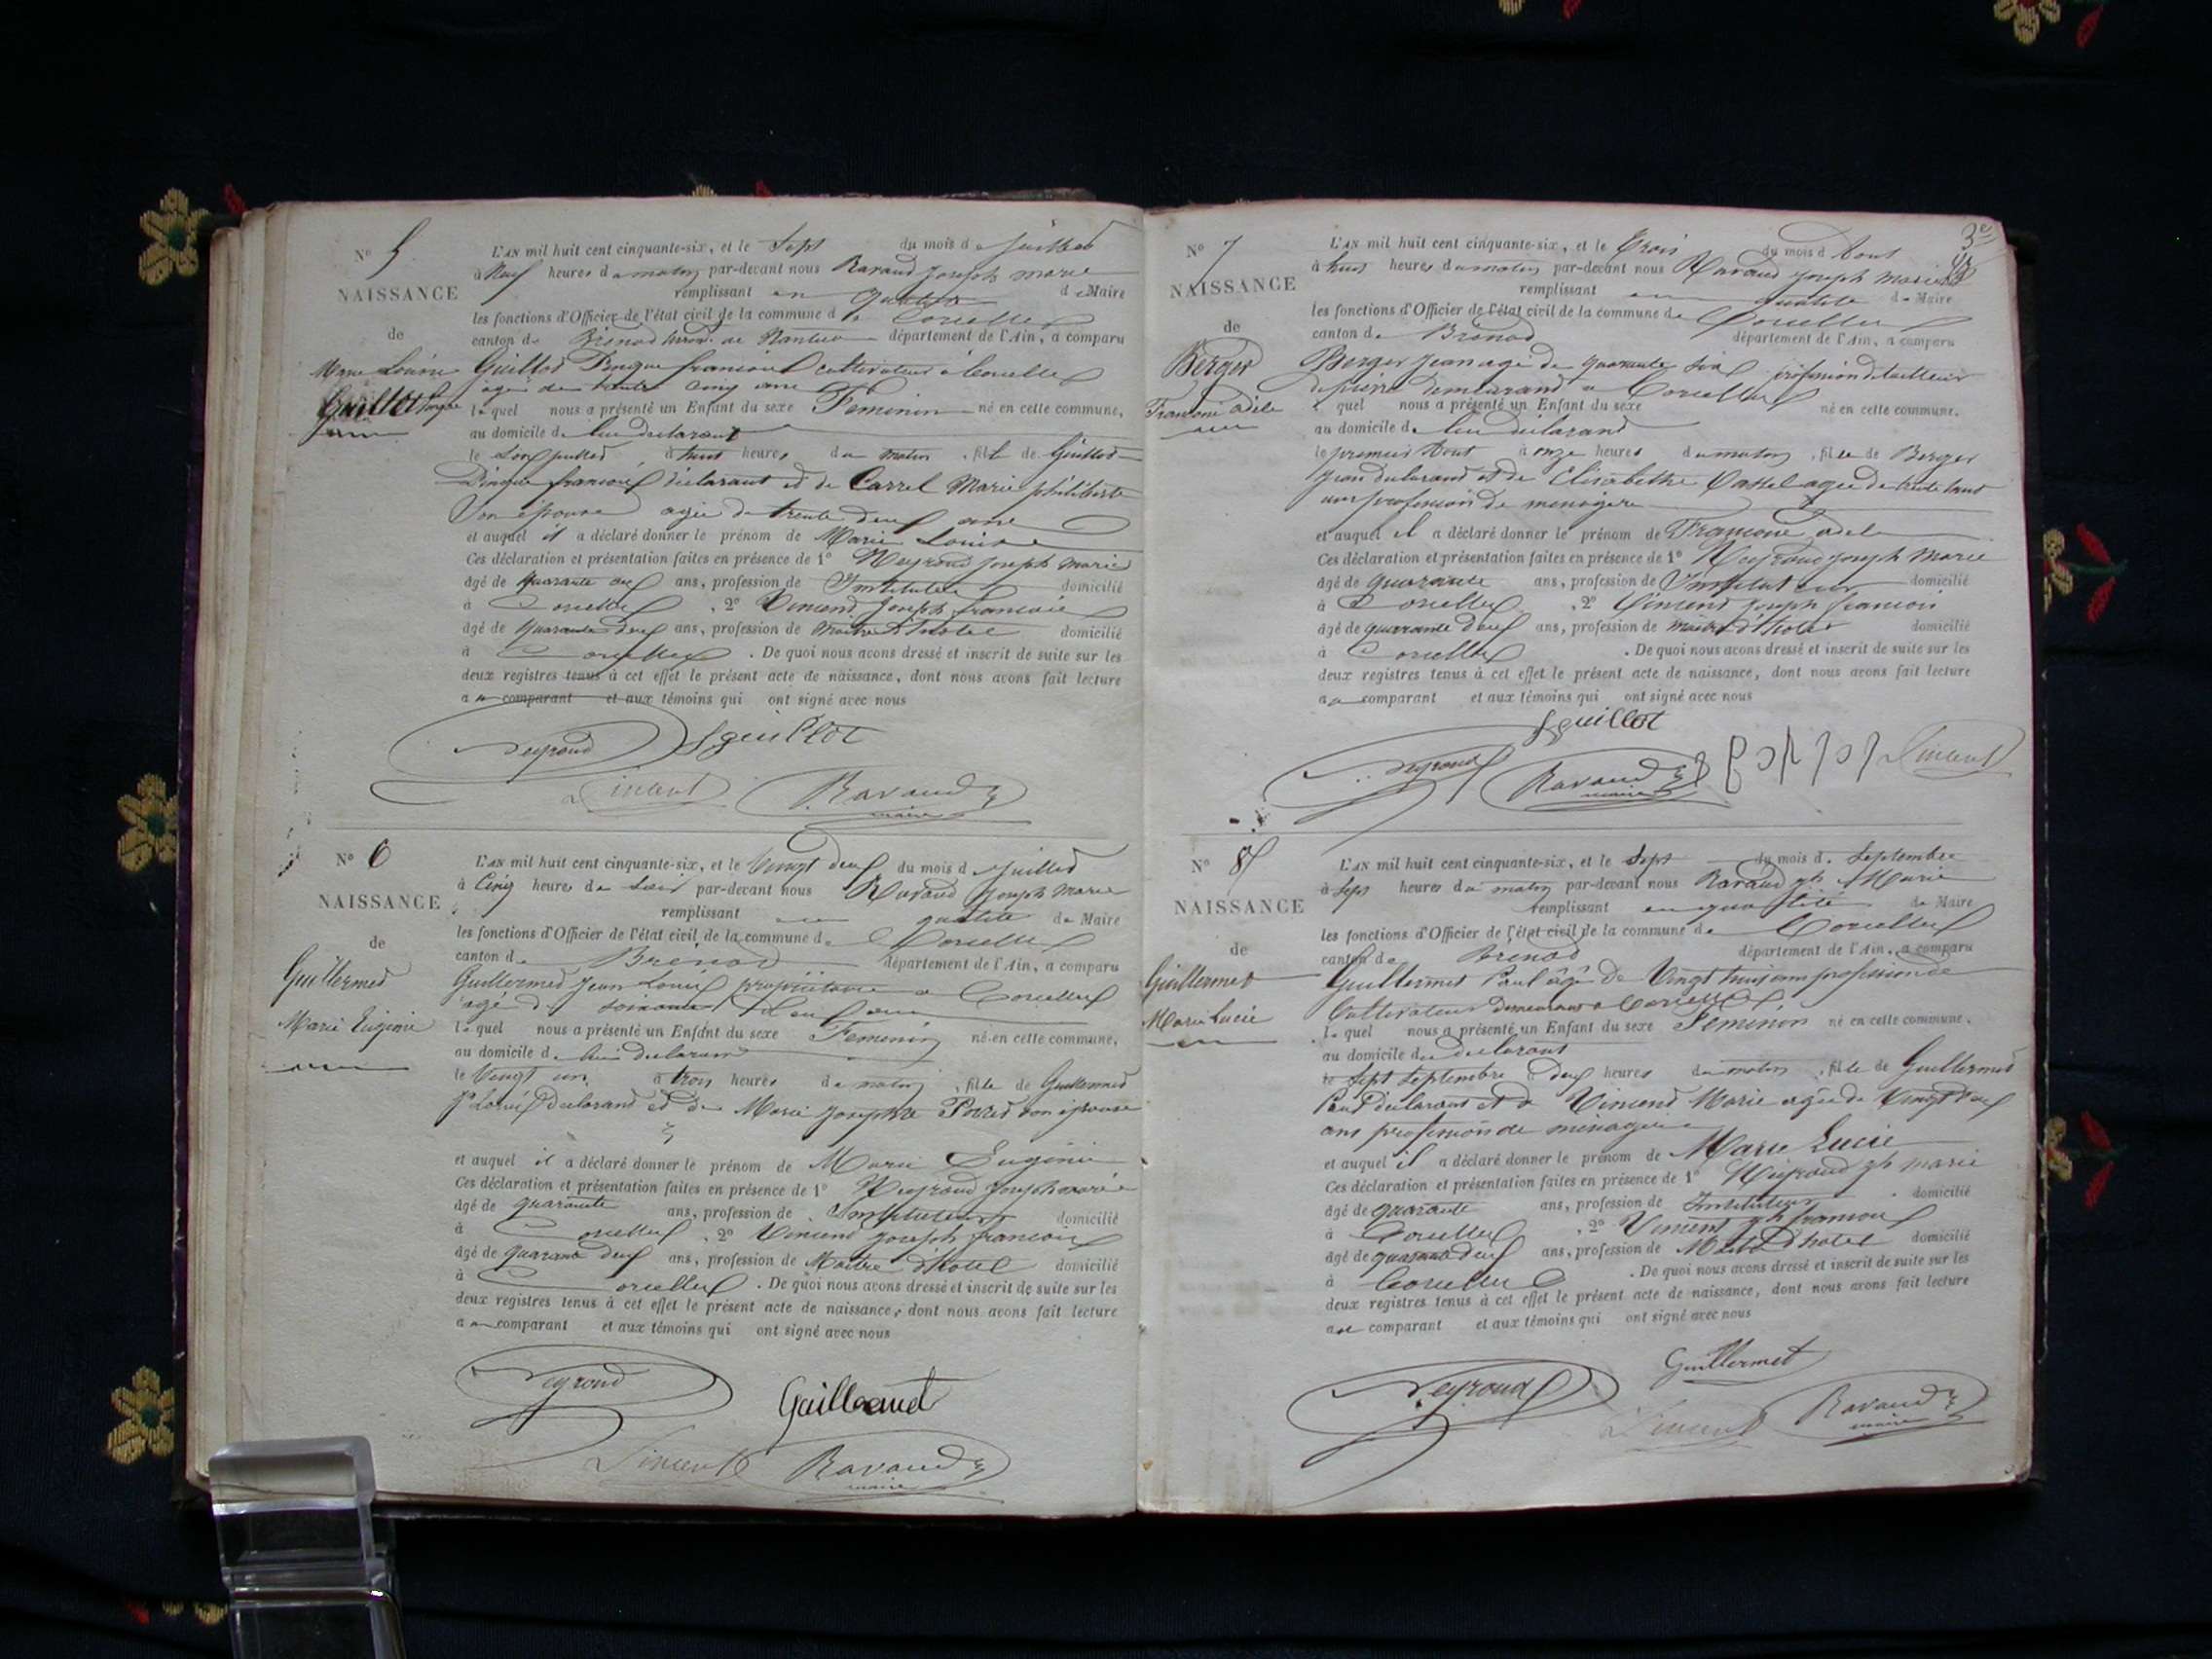 N° 5
NAISSANCE
de
Marie Louise
Guillot
L'AN mil huit cent cinquante-six, et le Sept du mois de Juillet
à Neuf heures du matin par-devant nous Ravaud Joseph Marie
remplissant en qualité de Maire
les fonctions d'Officier de l'état civil de la commune de Corcelles
canton de Brénod arrond. de Nantua département de l'Ain, a comparu
Guillot françois cultivateur à Corcelles
agé de trente cinq ans
lequel nous a présenté un Enfant du sexe Feminin né en cette commune,
au domicile de lui declarant
le juillet à huit heures du matin, fille de Guillot
françois déclarant et de Carrel Marie philiberte
Son épouse agée de trente deux ans
et auquel il a déclaré donner le prénom de Marie Louise
Ces déclaration et présentation faites en présence de 1° Neyroud Joseph Marie
âgé de quarante ans, profession de Instituteur domicilié
à Corcelles, 2° Vincent Joseph francois
âgé de quarante deux ans, profession de Maitre d'hotel domicilié
à Corcelles. De quoi nous avons dressé et inscrit de suite sur les
deux registres tenus à cet effet le présent acte de naissance, dont nous avons fait lecture
au comparant et aux témoins qui ont signé avec nous
Neyroud Guillot
Vincent Ravaud
maire
N° 6
NAISSANCE
de
Guillermet
Marie Eugénie
L'AN mil huit cent cinquante-six, et le Vingt deux du mois de Juillet
à Cinq heures du Soir par-devant nous Ravaud Joseph Marie
remplissant en qualité de Maire
les fonctions d'Officier de l'état civil de la commune de Corcelles
canton de Brenod département de l'Ain, a comparu
Guillermet Jean Louis propriétaire a Corcelles
agé de soixante ans
lequel nous a présenté un Enfant du sexe Feminin né en cette commune,
au domicile de lui declarant
le Vingt un à trois heures du matin, fille de Guillermet
Jn Louis declarant et de Marie Josephte son épouse
et auquel il a déclaré donner le prénom de Marie Eugénie
Ces déclaration et présentation faites en présence de 1° Neyroud Joseph marie
âgé de quarante ans, profession de Instituteur domicilié
à Corcelles, 2° Vincent Joseph francois
âgé de quarante deux ans, profession de Maitre d'hotel domicilié
à Corcelles. De quoi nous avons dressé et inscrit de suite sur les
deux registres tenus à cet effet le présent acte de naissance, dont nous avons fait lecture
au comparant et aux témoins qui ont signé avec nous
Neyroud
Vincent Ravaud
maire
3e
N° 7
NAISSANCE
de
Berger
Francoise Adele
L'AN mil huit cent cinquante-six, et le Trois du mois d'Aout
à huit heures du matin par-devant nous Ravaud Joseph Marie
remplissant en qualité de Maire
les fonctions d'Officier de l'état civil de la commune de Corcelles
canton de Brénod département de l'Ain, a comparu
Berger Jean agé de quarante six profession de tailleur
de pierre demeurant a Corcelles
lequel nous a présenté un Enfant du sexe né en cette commune,
au domicile de lui declarant
le premier Aout à onze heures du matin, fille de Berger
Jean declarant et de Elisabethe agée de trente huit
ans profession de menagère
et auquel il a déclaré donner le prénom de Francoise adele
Ces déclaration et présentation faites en présence de 1° Neyroud Joseph Marie
âgé de quarante ans, profession de Instituteur domicilié
à Corcelles, 2° Vincent Joseph francois
âgé de quarante deux ans, profession de maitre d'hotel domicilié
à Corcelles. De quoi nous avons dressé et inscrit de suite sur les
deux registres tenus à cet effet le présent acte de naissance, dont nous avons fait lecture
au comparant et aux témoins qui ont signé avec nous
Guillot
Neyroud Ravaud Vincent
maire
N° 8
NAISSANCE
de
Guillermet
Marie Lucie
L'AN mil huit cent cinquante-six, et le Sept du mois de Septembre
à Sept heures du matin par-devant nous Ravaud jh Marie
remplissant en qualité de Maire
les fonctions d'Officier de l'état civil de la commune de Corcelles
canton de Brénod département de l'Ain, a comparu
Guillermet Paul âgé de Vingt trois ans profession de
Cultivateur demeurant a Corcelles
lequel nous a présenté un Enfant du sexe Feminin né en cette commune,
au domicile du declarant
le Sept Septembre à deux heures du matin, fille de Guillermet
Paul declarant et de Vincent Marie agée de Vingt deux
ans profession de menagère
et auquel il a déclaré donner le prénom de Marie Lucie
Ces déclaration et présentation faites en présence de 1° Neyroud jh marie
âgé de quarante ans, profession de Instituteur domicilié
à Corcelles, 2° Vincent jh francois
âgé de quarante deux ans, profession de Maitre d'hotel domicilié
à Corcelles. De quoi nous avons dressé et inscrit de suite sur les
deux registres tenus à cet effet le présent acte de naissance, dont nous avons fait lecture
au comparant et aux témoins qui ont signé avec nous
Guillermet
Neyroud
Vincent Ravaud
maire